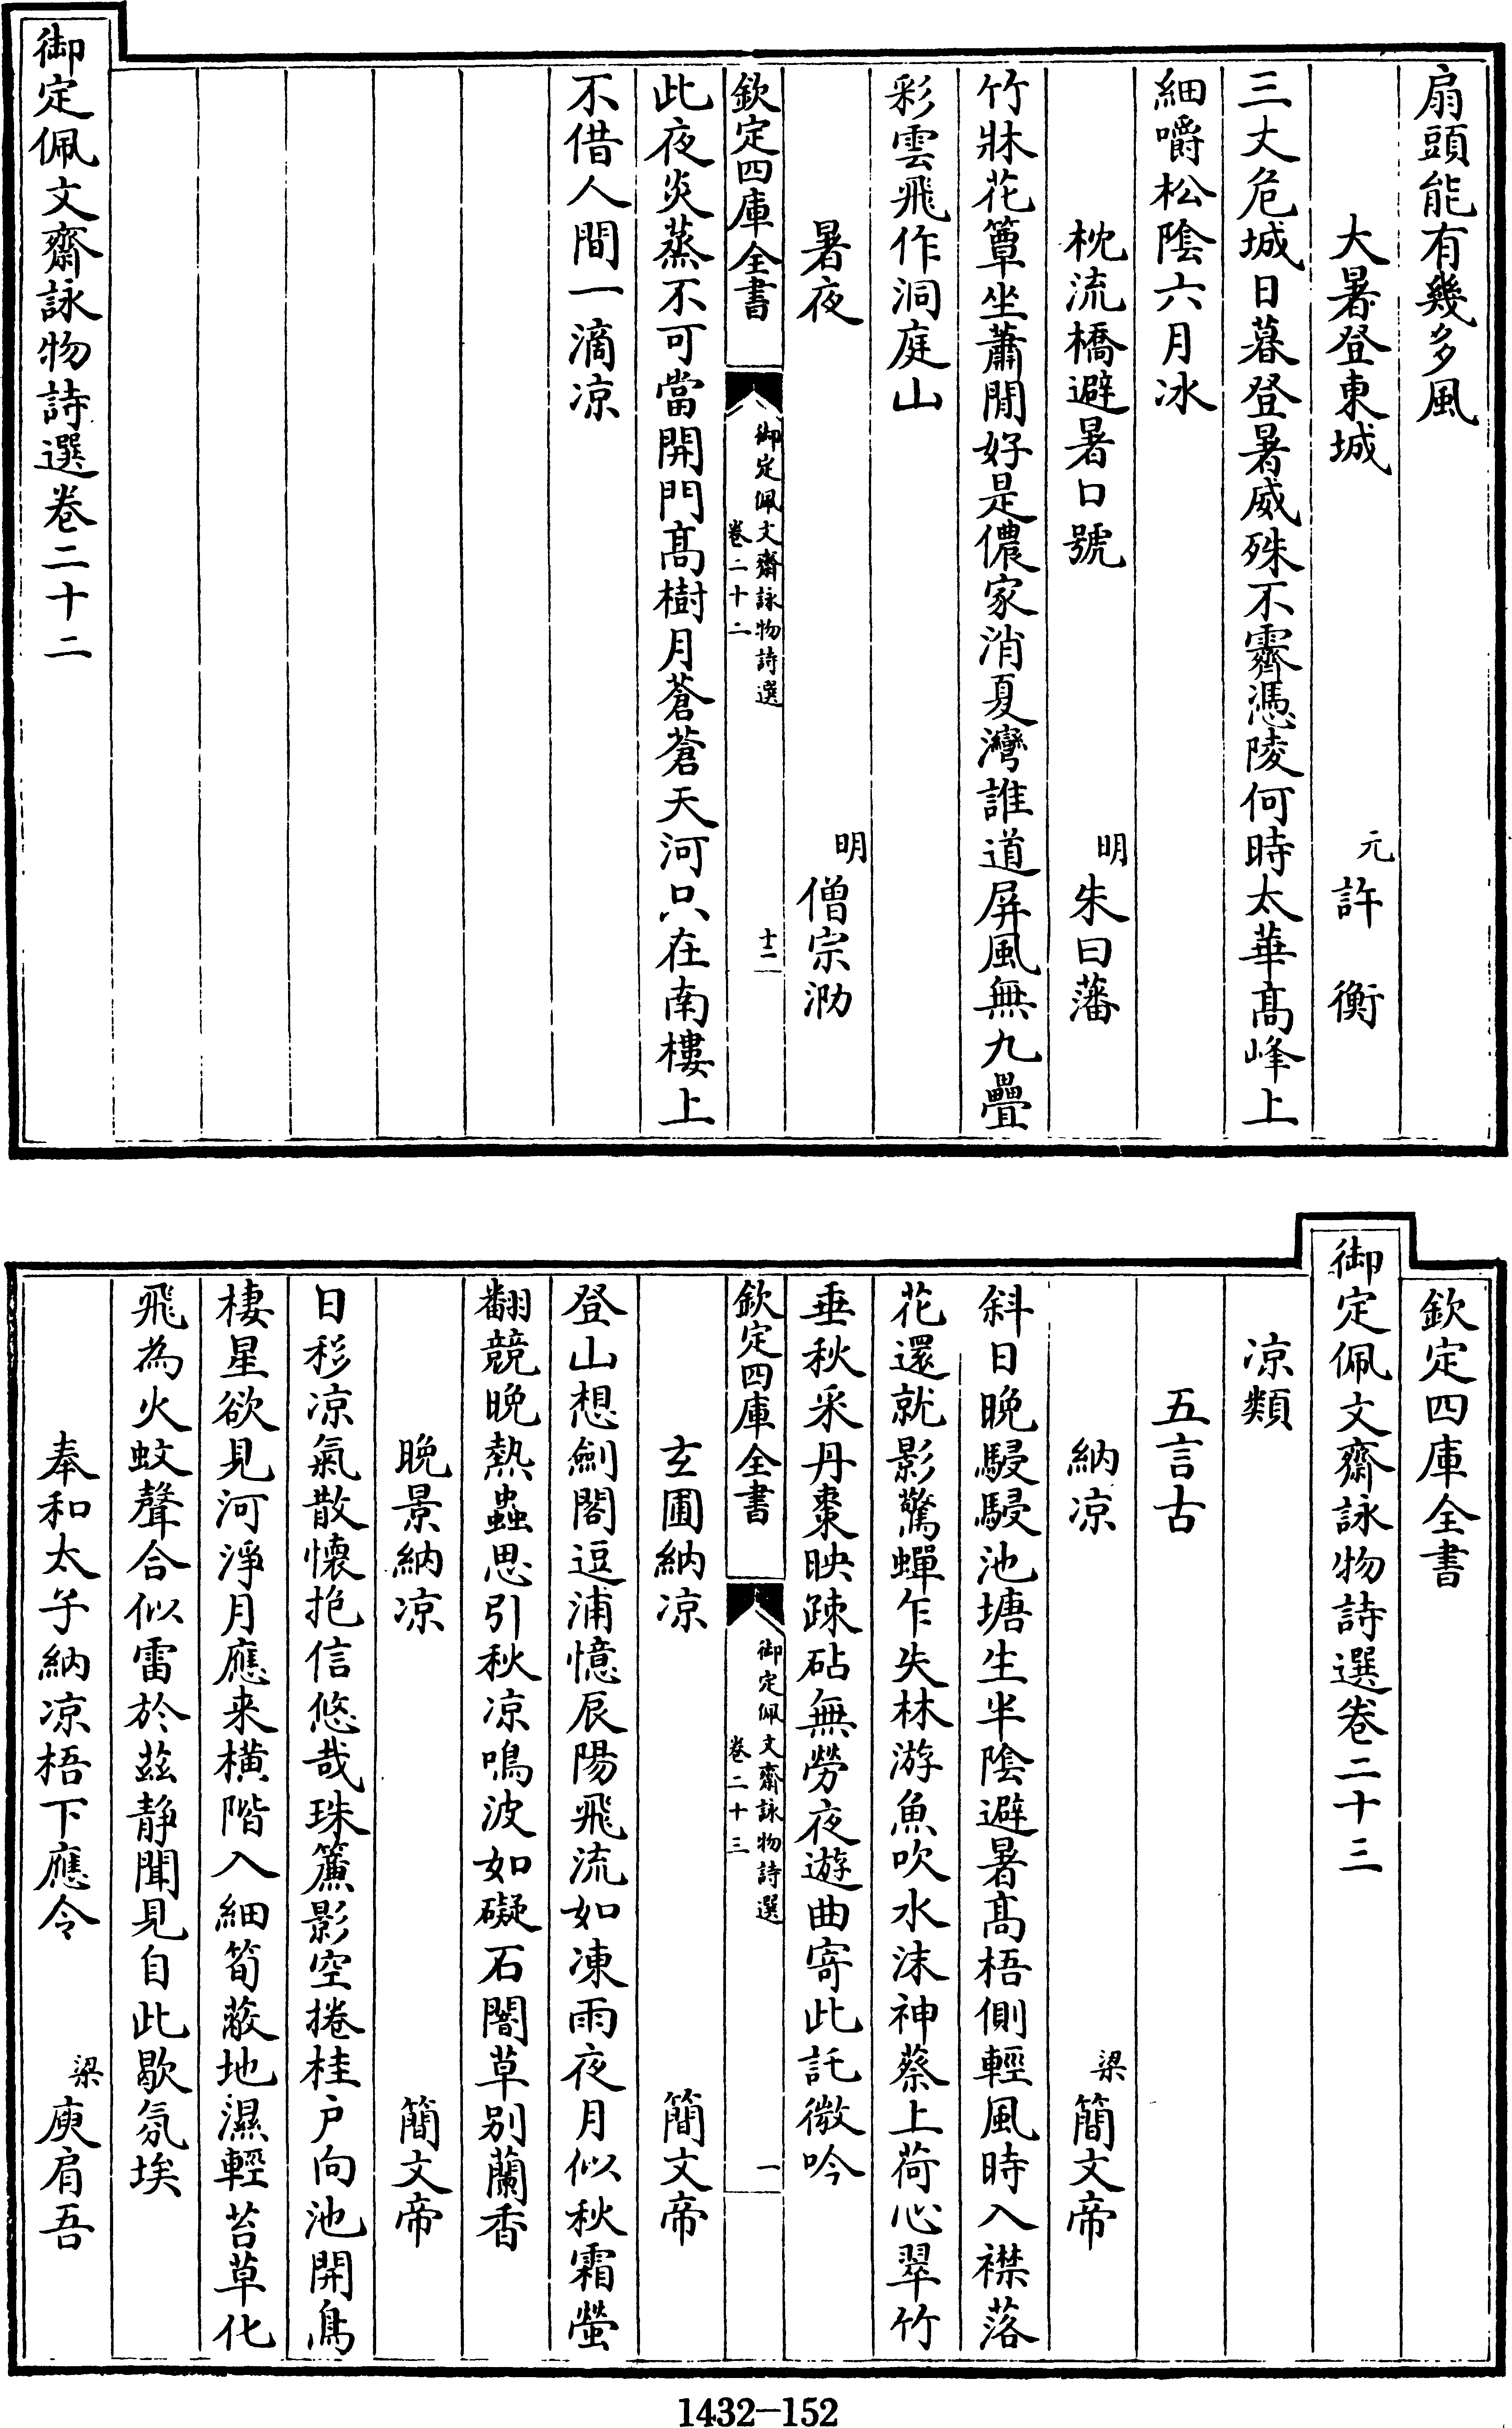 扇頭能有幾多風
大暑登東城 元 許衡
三丈危城日暮登暑威殊不霽憑陵何時太華髙峰上
細嚼松陰六月冰
枕流橋避暑口號 明 朱曰藩
竹牀花簟坐蕭閒好是儂家消夏灣誰道屏風無九疊
彩雲飛作洞庭山
暑夜 明 僧宗泐
欽定四庫全書 御定佩文齋詠物詩選 卷二十二 十二
此夜炎蒸不可當開門髙樹月蒼蒼天河只在南樓上
不借人間一滴凉
御定佩文齋詠物詩選卷二十二
欽定四庫全書
御定佩文齋詠物詩選卷二十三
凉類
五言古
納凉 梁 簡文帝
斜日晚駸駸池塘生半陰避暑髙梧側輕風時入襟落
花還就影驚蟬乍失林游魚吹水沫神蔡上荷心翠竹
垂秋采丹棗映疎砧無勞夜遊曲寄此託微吟
欽定四庫全書 御定佩文齋詠物詩選 卷二十三 一
玄圃納凉 簡文帝
登山想劍閣逗浦憶辰陽飛流如凍雨夜月似秋霜螢
翻競晚熱蟲思引秋凉鳴波如礙石闇草别蘭香
晚景納凉 簡文帝
日移凉氣散懷抱信悠哉珠簾影空捲桂户向池開鳥
棲星欲見河淨月應来横階入細筍蔽地濕輕苔草化
飛為火蚊聲合似雷於茲静聞見自此歇氛埃
奉和太子納凉梧下應令 梁 庾肩吾
1432-152